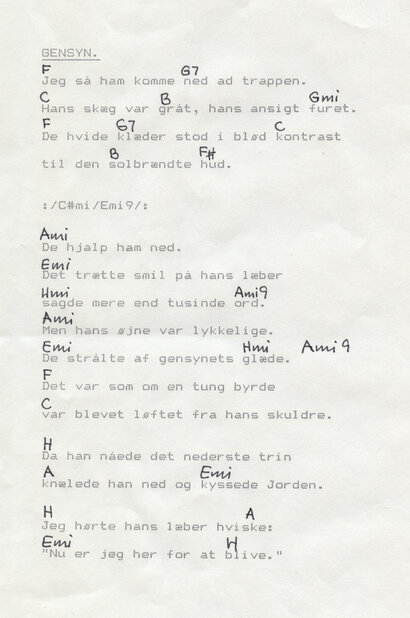 GENSYN.
F G7
Jeg så ham komme ned ad trappen.
C B Gmi
Hans skæg var gråt, hans ansigt furet.
F G7 C
De hvide klæder stod i blød kontrast
B F#
til den solbrændte hud.
:/C#mi/Emi9/:
Ami
De hjalp ham ned.
Emi
Det trætte smil på hans læber
Hmi Ami9
sagde mere end tusinde ord.
Ami
Men hans øjne var lykkelige.
Emi Hmi Ami9
De strålte af gensynets glæde.
F
Det var som om en tung byrde
C
var blevet løftet fra hans skuldre.
H
Da han nåede det nederste trin
A Emi
knælede han ned og kyssede Jorden.
H A
Jeg hørte hans læber hviske:
Emi H
"Nu er jeg her for at blive."